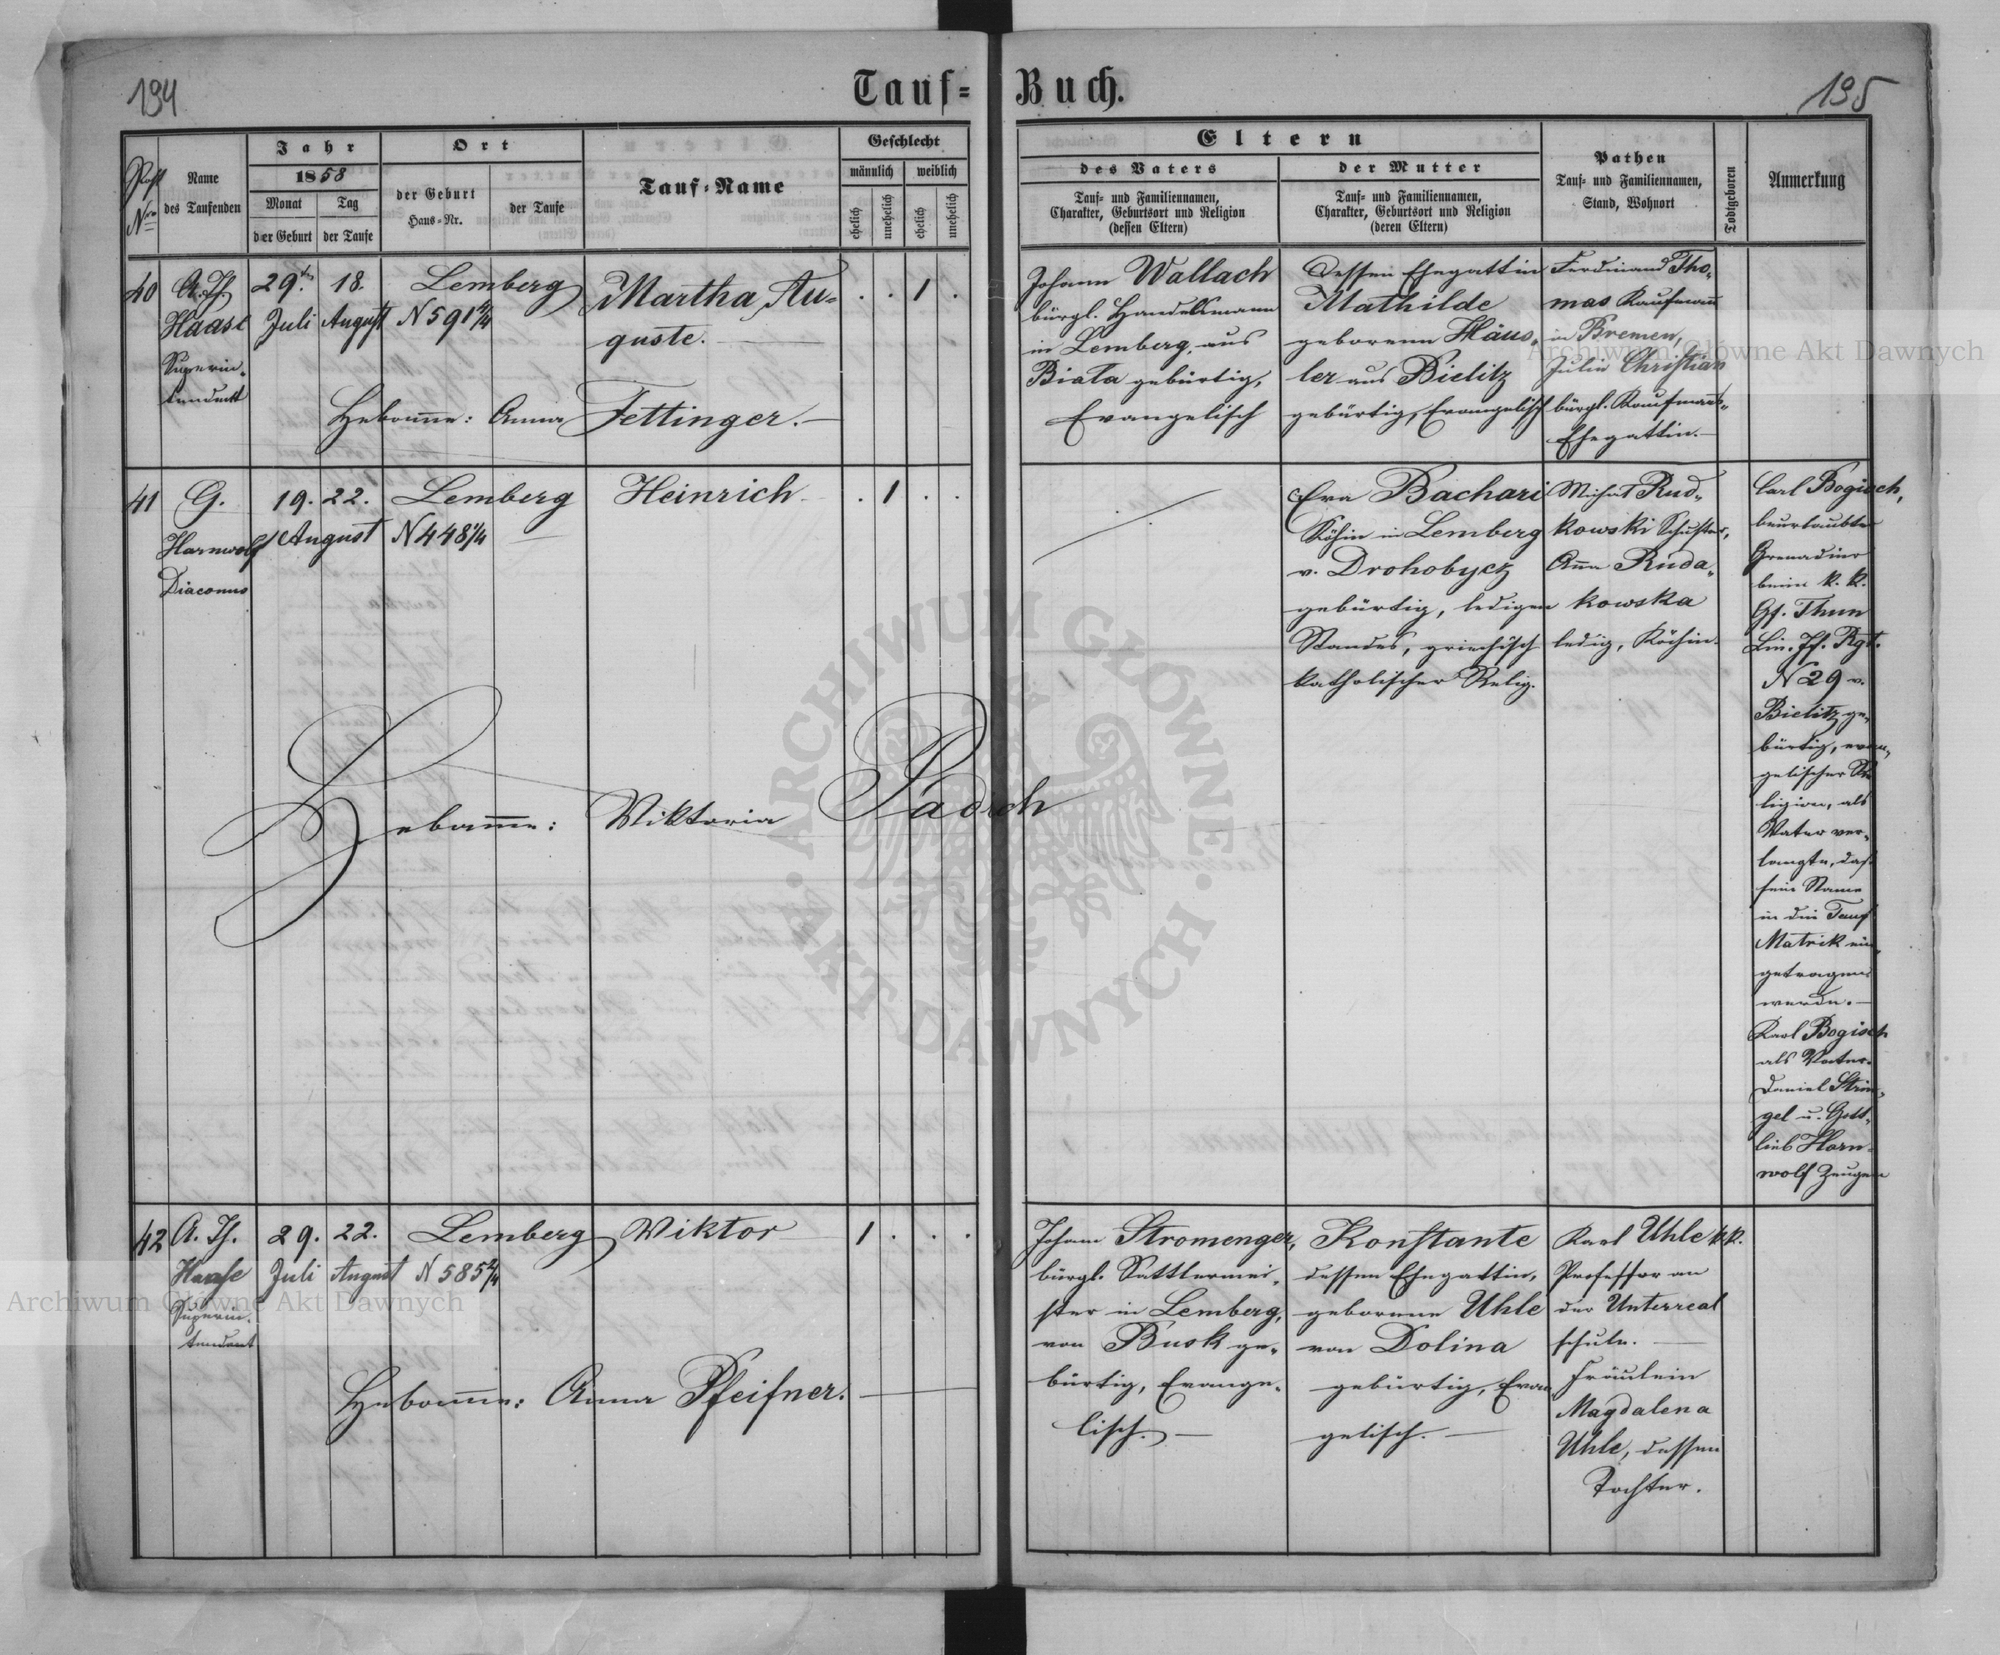 194
Tauf=
Buch.
195
Post
Nro
Name
des Taufenden
Jahr
1858
Monat
der Geburt
Tag
der Taufe
Ort
der Geburt
Haus=Nr.
der Taufe
Tauf=Name
Geschlecht
männlich
weiblich
ehelich
unehelich
ehelich
unehelich
Eltern
des Vaters
Tauf= und Familiennamen,
Charakter, Geburtsort und Religion
(dessen Eltern)
der Mutter
Tauf= und Familiennamen,
Charakter, Geburtsort und Religion
(deren Eltern)
Pathen
Tauf= und Familiennamen,
Stand, Wohnort
Todtgeboren
Anmerkung
40
A. Th.
Haase
Superin=
tendent
29ten
Juli
18.
August
Lemberg
N 591 4/4
Martha Au=
guste.
. . 1 .
Hebamme: Anna Fettinger.
Johann Wallach
bürgl. Handelsmann
in Lemberg, aus
Biala gebürtig,
Evangelisch
Dessen Ehegattin
Mathilde
geborene Häus=
ler aus Bielitz
gebürtig, Evangelisch
Ferdinand Tho=
mas Kaufmann
in Bremen,
Julie Christian
bürgl. Kaufmanns=
Ehegattin.
41
G.
Harnwolf
Diaconus
19. 22.
August
Lemberg
N 448 1/4
Heinrich
. 1 . .
Hebamme: Viktoria Paduch
Eva Bachari
Köchin in Lemberg
v. Drohobycz
gebürtig, ledigen
Standes, griechisch
katholischer Relig.
Michael Rud=
kowski Schuster,
Anna Ruda=
kowska
ledig, Köchin.
Carl Bogisch,
beurlaubter
Grenadier
beim k. k.
Gf. Thun
Lin. If. Rgt.
N 29 v.
Bielitz ge=
bürtig, evan=
gelischer Re
ligion, als
Vater ver=
langte, daß
sein Name
in die Tauf
Matrik ein=
getragen
werde.
Karl Bogisch
als Vater.
Daniel Strin=
gel u. Gott=
lieb Harn=
wolf Zeugen
42
A. Th.
Haase
Superin=
tendent
29.
Juli
22.
August
Lemberg
N 585 2/4
Viktor
1 . . .
Hebamme: Anna Pfeifner.
Johann Stromenger,
bürgl. Sattlermei=
ster in Lemberg,
von Busk ge=
bürtig, Evange=
lisch.
Konstante
dessen Ehegattin,
geborene Uhle
von Dolina
gebürtig, Evan
gelisch.
Karl Uhle k.k.
Professor an
der Unterreal
schule.
Fräulein
Magdalena
Uhle, dessen
Tochter.
Archiwum Główne Akt Dawnych
ARCHIWUM GŁÓWNE · AKT DAWNYCH ·
Archiwum Główne Akt Dawnych